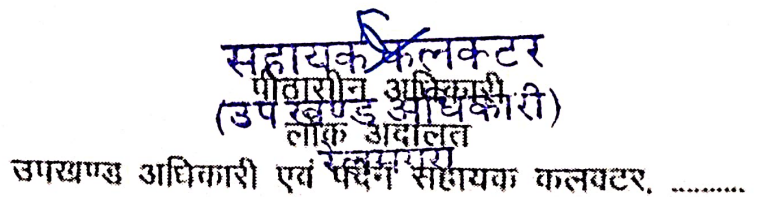 सहायक कलक्टर
पीठासीन अधिकारी
(उपखण्ड अधिकारी)
लोक अदालत
उपखण्ड अधिकारी एवं पदेन सहायक कलक्टर, ..........